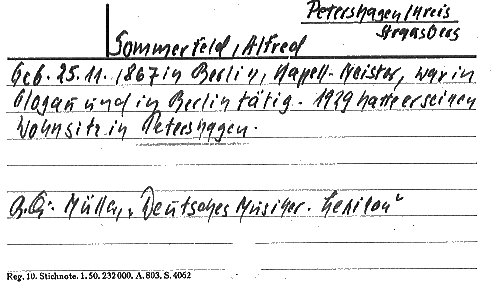 Petershagen/Kreis
Strausberg
Sommerfeld, Alfred
Geb. 25.11.1867 in Berlin, Kapell-Meister, war in
Glogau und in Berlin tätig. 1929 hatte er seinen
Wohnsitz in Petershagen.
Müller, "Deutsches Musiker-Lexikon"
Reg. 10. Stichnote. 1. 50. 232000. A. 803. S. 4062